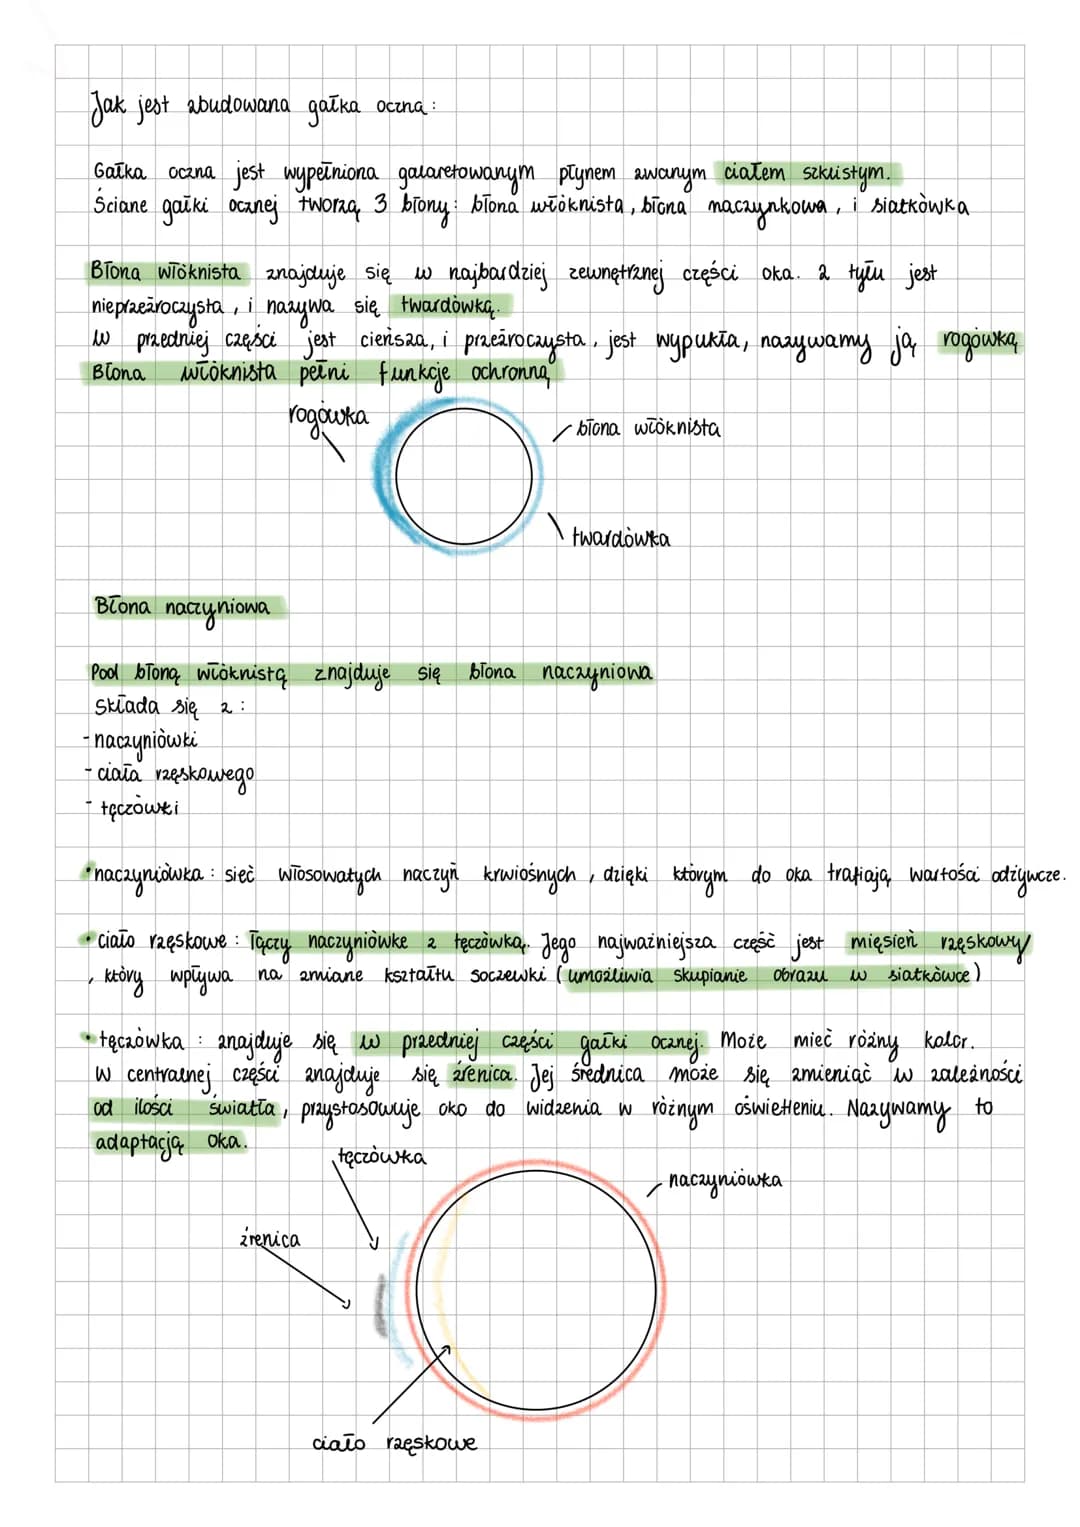 Jak jest zbudowana gałka oczna:
Gałka oczna jest wypełniona galaretowanym płynem zwanym ciałem szklistym.
Ściane gałki ocznej tworzą 3 błony: błona włóknista, błona naczynkowa, i siatkówka
Błona włóknista znajduje się w najbardziej zewnętrznej części oka. z tyłu jest
nieprzeźroczysta, i nazywa się twardówką.
W przedniej części jest cieńsza, i przeźroczysta, jest wypukła, nazywamy ją rogówką
Błona włóknista pełni funkcje ochronną
rogówka
błona włóknista
twardówka
Błona naczyniowa
Pod błoną włóknistą znajduje się błona naczyniowa
Składa się z:
- naczyniówki
- ciała rzęskowego
- tęczówki
• naczyniówka: sieć włosowatych naczyń krwiośnych, dzięki którym do oka trafiają wartości odżywcze.
• ciało rzęskowe: Łączy naczyniówke z tęczówką. Jego najważniejsza część jest mięsień rzęskowy
, który wpływa na zmiane kształtu soczewki (umożliwia skupianie obrazu w siatkówce)
• tęczówka: znajduje się w przedniej części gałki ocznej. Może mieć różny kolor.
W centralnej części znajduje się źrenica. Jej średnica może się zmieniać w zależności
od ilości światła, przystosowuje oko do widzenia w różnym oświetleniu. Nazywamy to
adaptacją oka.
tęczówka
naczyniówka
źrenica
ciało rzęskowe